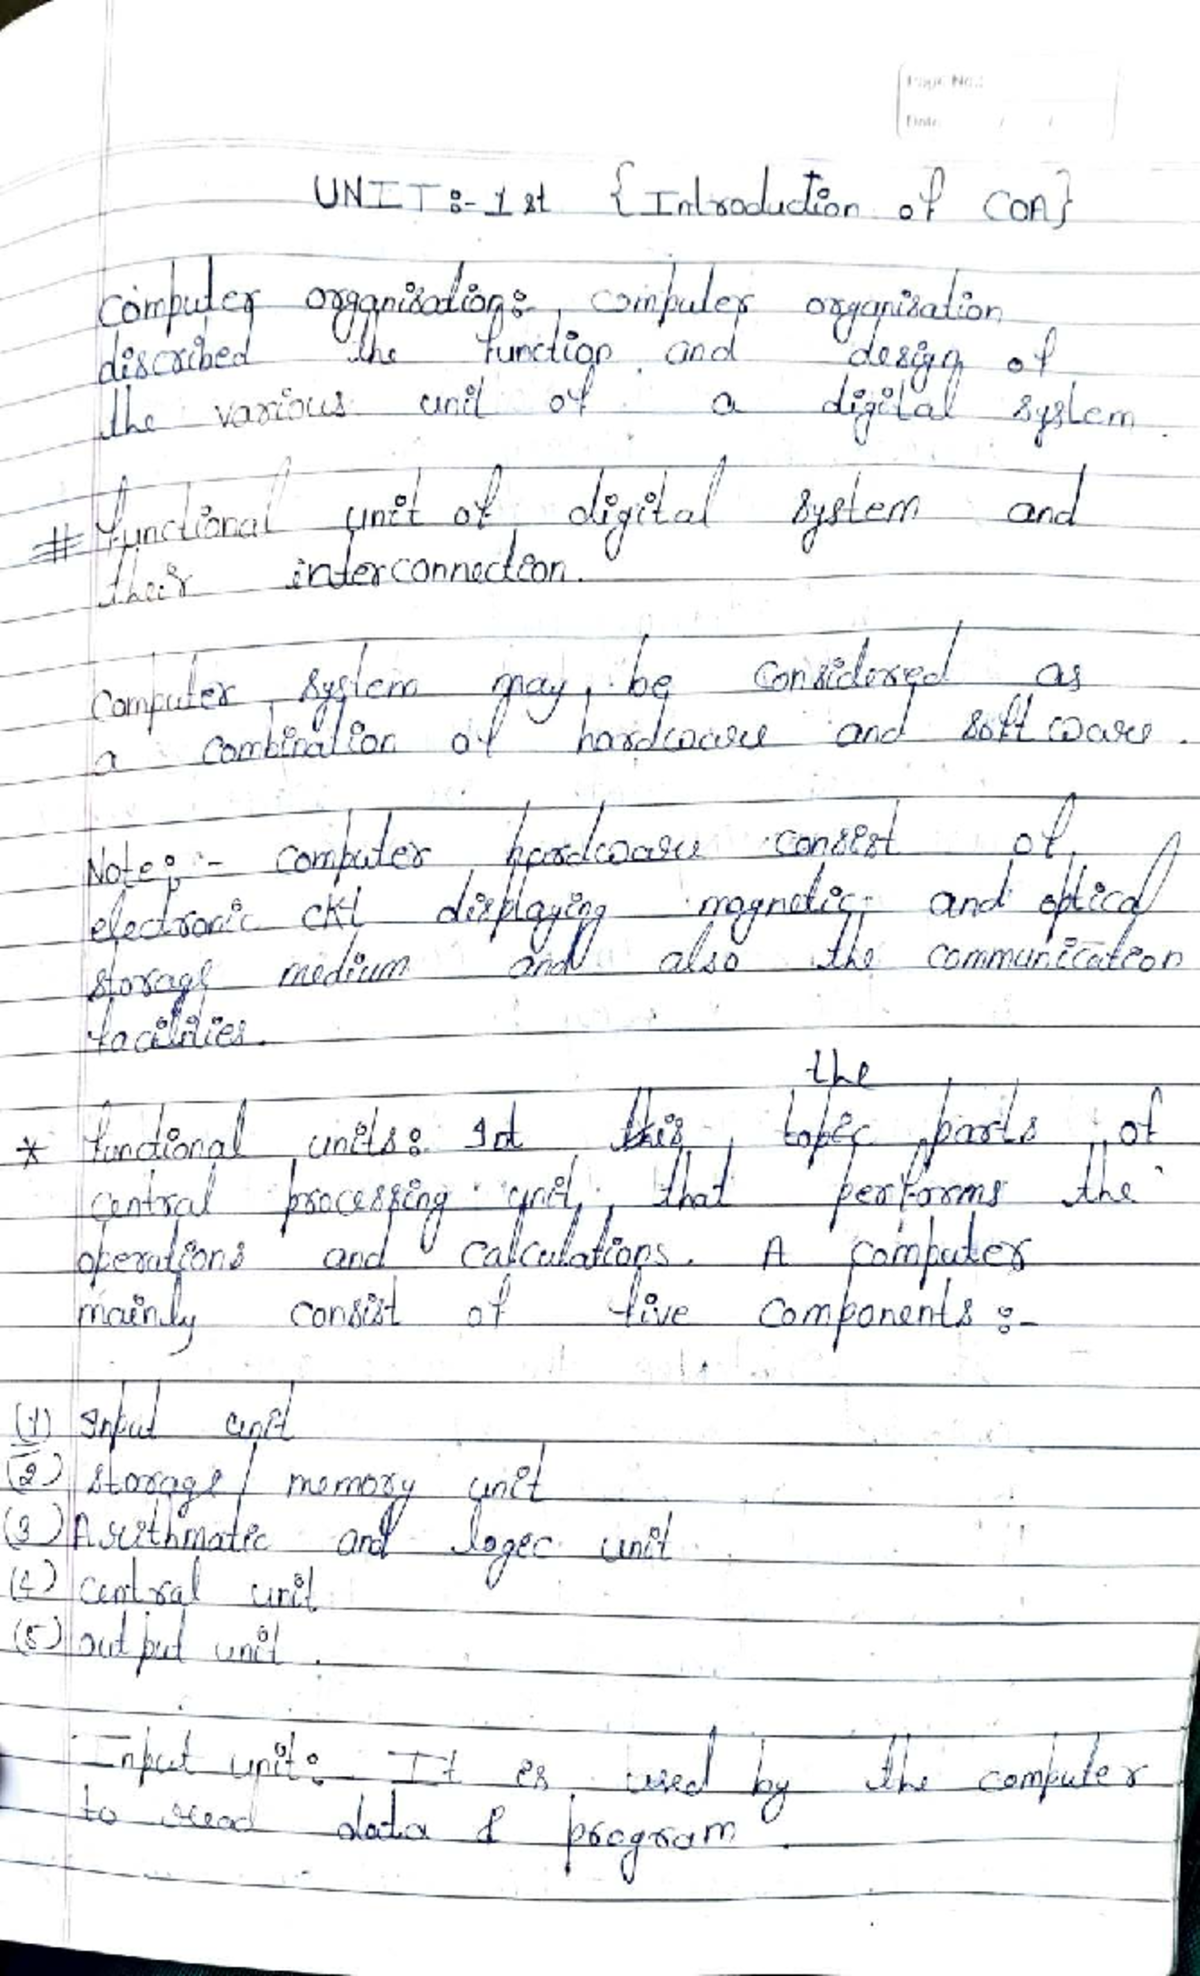 Page No.:
Date: / /
UNIT:-1st {Introduction of COA}
computer organisation:- computer organisation
discribed the function and design of
the various unit of a digital system.
# functional unit of digital system and
their interconnection.
computer system may be considered as
a combination of hardware and software.
Note:- computer hardware consist of
electronic ckt displaying magnetic and optical
storage medium and also the communication
facilities.
the
* functional units: In this, topic parts of
central processing unit, that performs the
operations and calculations. A computer
mainly consist of five components:-
(1) Input unit
(2) storage/ memory unit
(3) Arithmatic and logic unit
(4) central unit
(5) output unit.
Input unit: It is used by the computer
to read data & program.